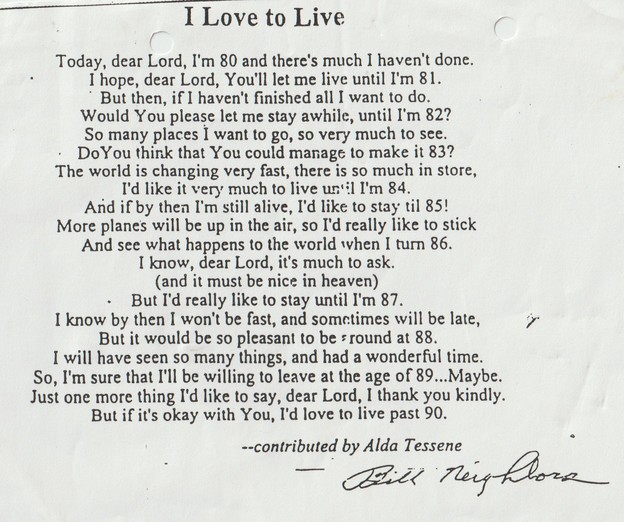 I Love to Live
Today, dear Lord, I'm 80 and there's much I haven't done.
I hope, dear Lord, You'll let me live until I'm 81.
But then, if I haven't finished all I want to do.
Would You please let me stay awhile, until I'm 82?
So many places I want to go, so very much to see.
DoYou think that You could manage to make it 83?
The world is changing very fast, there is so much in store,
I'd like it very much to live until I'm 84.
And if by then I'm still alive, I'd like to stay til 85!
More planes will be up in the air, so I'd really like to stick
And see what happens to the world when I turn 86.
I know, dear Lord, it's much to ask.
(and it must be nice in heaven)
But I'd really like to stay until I'm 87.
I know by then I won't be fast, and sometimes will be late,
But it would be so pleasant to be around at 88.
I will have seen so many things, and had a wonderful time.
So, I'm sure that I'll be willing to leave at the age of 89...Maybe.
Just one more thing I'd like to say, dear Lord, I thank you kindly.
But if it's okay with You, I'd love to live past 90.
--contributed by Alda Tessene
Bill Neighbors